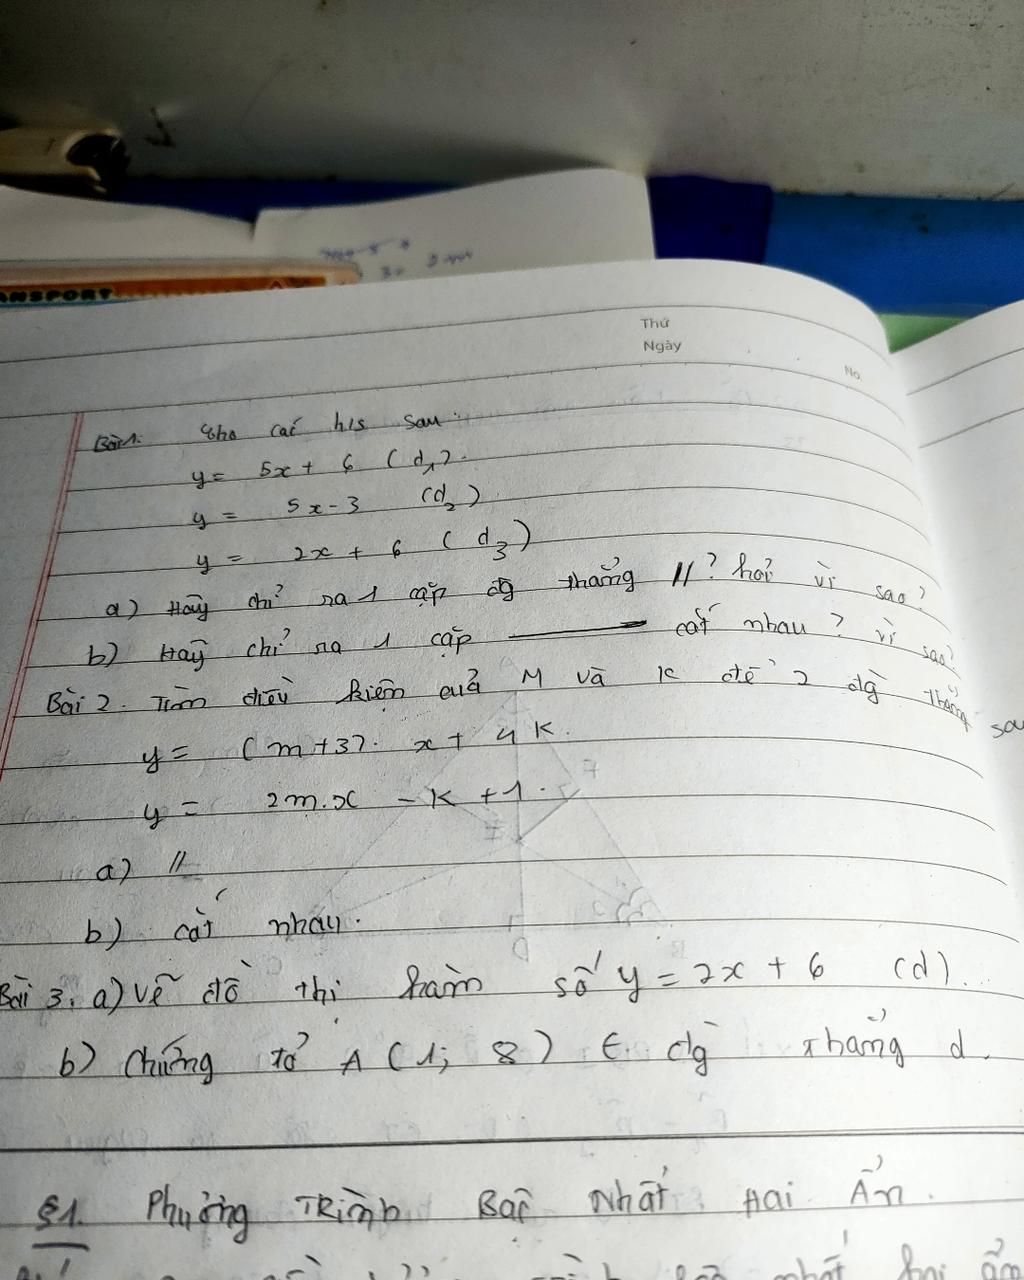 ANSPORT
Thứ
Ngày
No.
Bài 1. Cho các h/s sau:
y = 5x + 6 (d1).
y = 5x - 3 (d2)
y = 2x + 6 (d3)
a) Hãy chỉ ra 1 cặp đg thẳng //? hỏi vì sao?
b) Hãy chỉ ra 1 cặp ——— cắt nhau? vì sao?
Bài 2. Tìm điều kiện của M và K để 2 đg thẳng sau
y = (m+3). x + 4K.
y = 2m.x - K + 1.
a) //
b) cắt nhau.
Bài 3. a) Vẽ đồ thị hàm số y = 2x + 6 (d).
b) Chứng tỏ A (1; 8) ∈ đg thẳng d.
§1. Phương Trình Bậc Nhất Hai Ẩn.
nhất hai ẩn